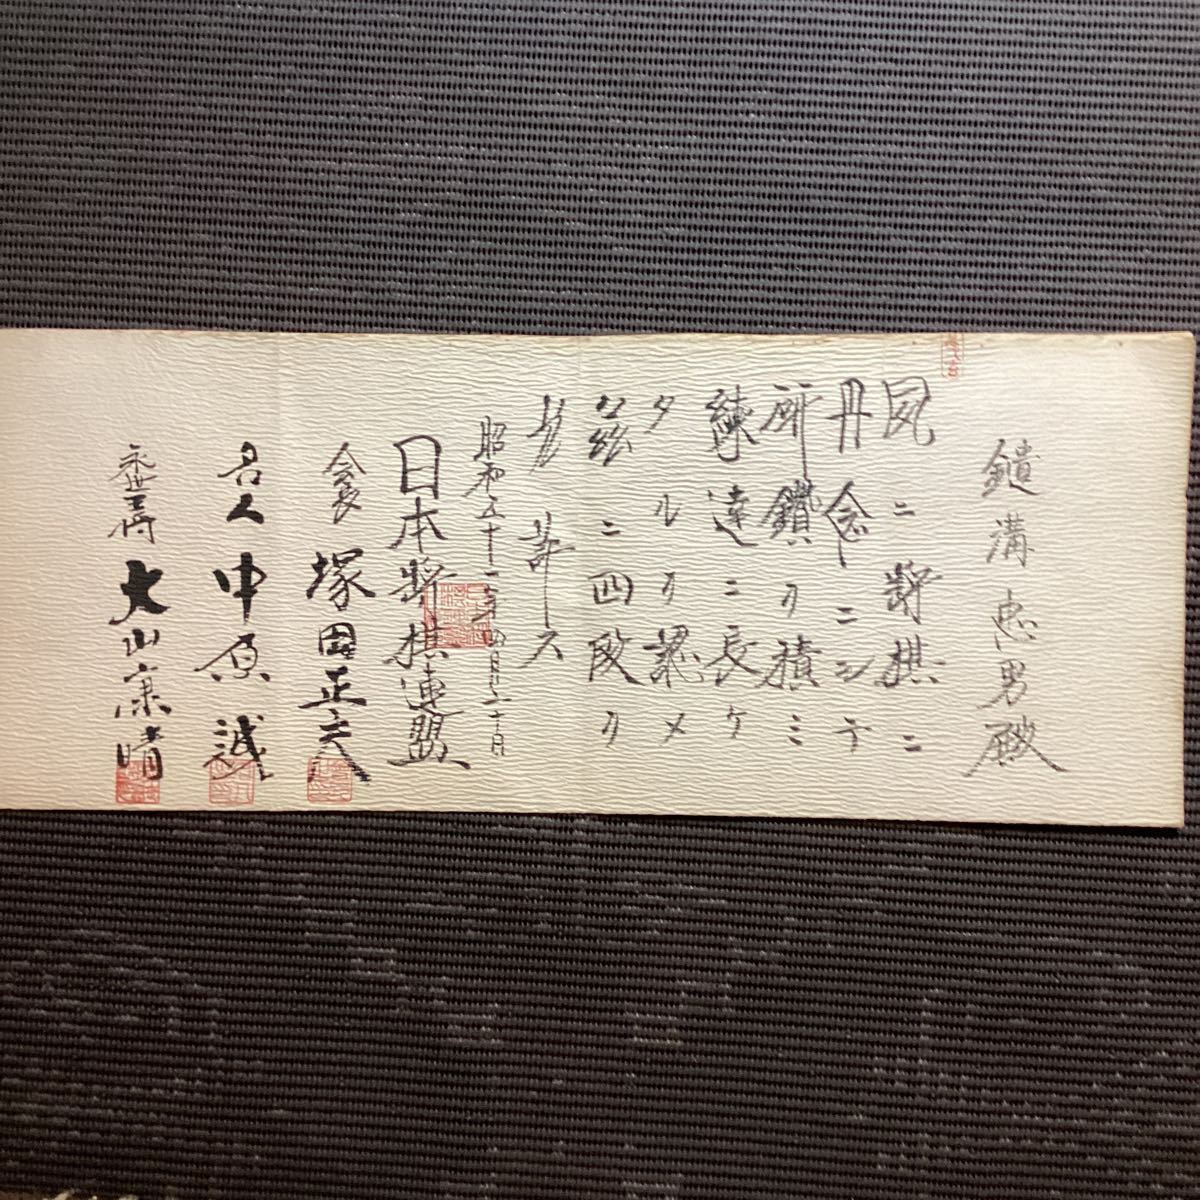 鑓溝忠男殿
夙ニ将棋ニ
丹念ニシテ
研鑽ヲ積ミ
練達ニ長ケ
タルヲ認メ
茲ニ四段ヲ
免許ス
昭和五十一年四月二十日
日本将棋連盟
会長 塚田正夫
名人 中原誠
永世王将 大山康晴